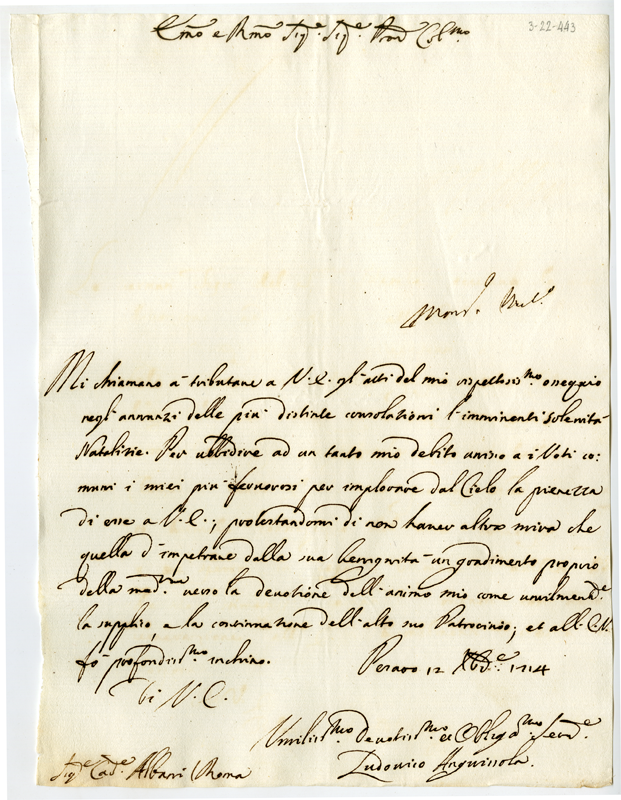 3-22-443
Emo e Rmo Sigr. Sigr. Pron Colmo.
Mi chiamano à tributare a V. E. gl'atti del mio rispettosismo ossequio
negl'annunzi delle più distinte consolationi l'imminenti Solenità
Natalizie. Per ubbidire ad un tanto mio debito unisco a i Voti co:
muni i miei più fervorosi per implorare dal Cielo la pienezza
di esse a V. E.; protestandomi di non haver altra mira che
quella d'impetrare dalla sua benignità un gradimento proprio
della medma. verso la devotione dell'animo mio come umilmente
la supplico, e la continuatione dell'alto suo Patrocinio; et all'E. V.
fò profondismo inchino. Pesaro 12 Xbre. 1714
Di V. E.
Umilismo Devotismo et Obligmo Serre.
Sigr Card. Albani Roma
Ludovico Anguissola.